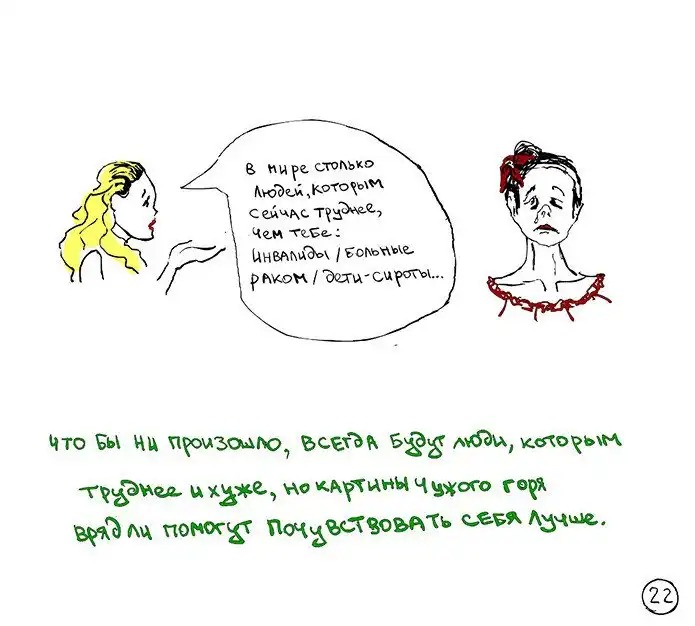 В мире столько
людей, которым
сейчас труднее,
чем тебе:
инвалиды / больные
раком / дети-сироты...
Что бы ни произошло, всегда будут люди, которым
труднее и хуже, но картины чужого горя
вряд ли помогут почувствовать себя лучше.
22